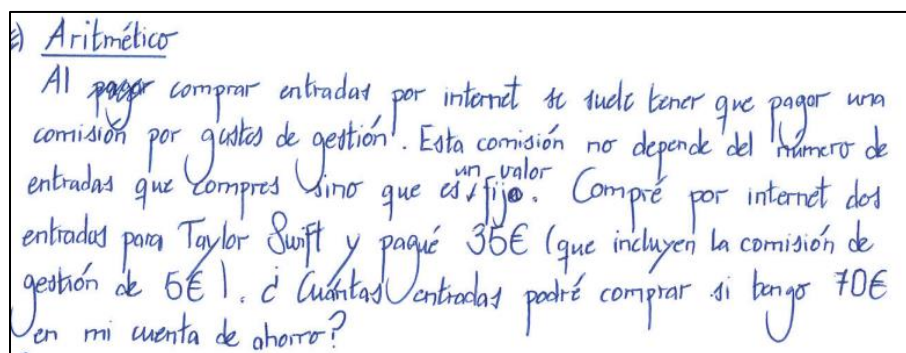 e) Aritmético
Al pagar comprar entradas por internet se suele tener que pagar una
comisión por gastos de gestión. Esta comisión no depende del número de
entradas que compres sino que es un valor fijo. Compré por internet dos
entradas para Taylor Swift y pagué 35€ (que incluyen la comisión de
gestión de 5€). ¿Cuántas entradas podré comprar si tengo 70€
en mi cuenta de ahorro?